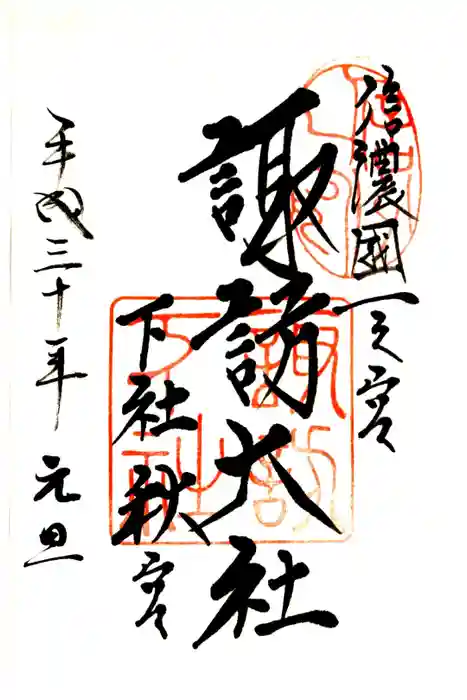 信濃國一之宮
諏訪大社
下社秋宮
平成三十年元旦